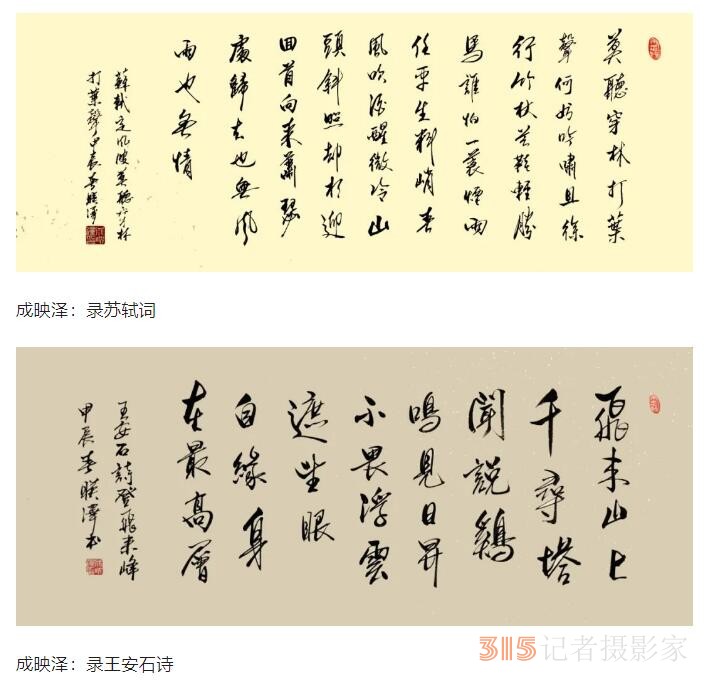 莫聽穿林打葉
聲何妨吟嘯且徐
行竹杖芒鞋輕勝
馬誰怕一蓑煙雨
任平生料峭春
風吹酒醒微冷山
頭斜照却相迎
回首向來蕭瑟
處歸去也無風
雨也無情
蘇軾定風波莫聽穿林
打葉聲甲辰春暎澤
成映泽：录苏轼词
飛來山上
千尋塔
聞説鷄
鳴見日昇
不畏浮雲
遮望眼
自緣身
在最高層
王安石詩登飛來峰
甲辰春暎澤书
成映泽：录王安石诗
315记者摄影家